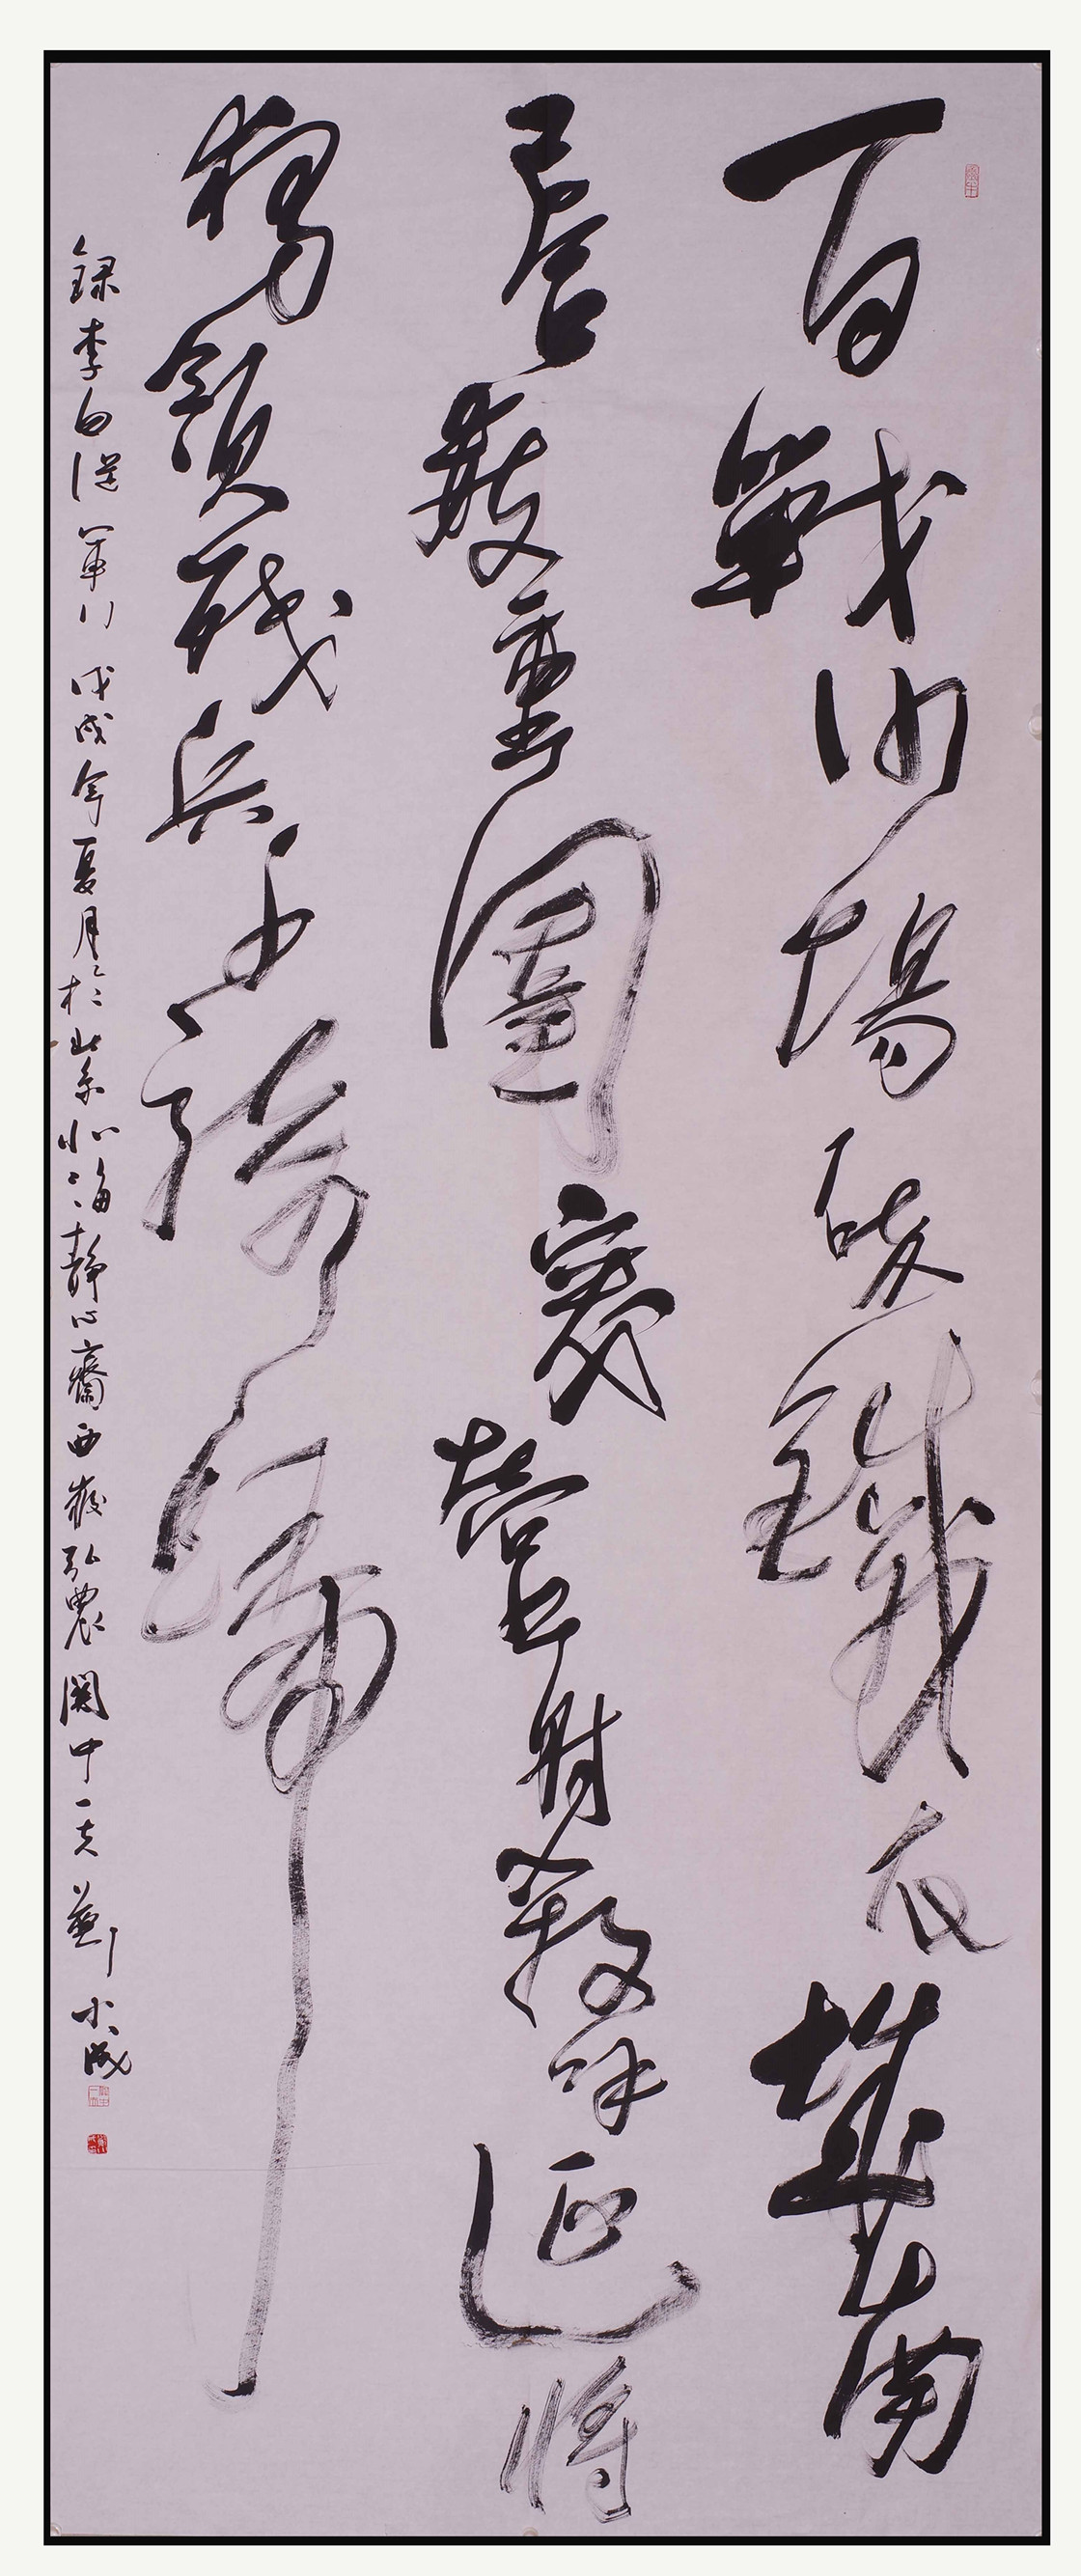 百戰沙場破鐵衣城南
已合數重圍突營射殺呼延將
獨領殘兵千騎歸
錄李白從軍行 戊戌年夏月於北京北海靜心齋西 弘農 關中一夫 小成